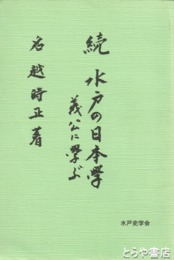 続 水戸の日本学
義公に学ぶ
名越時正著
水戸史学会
とらや書店